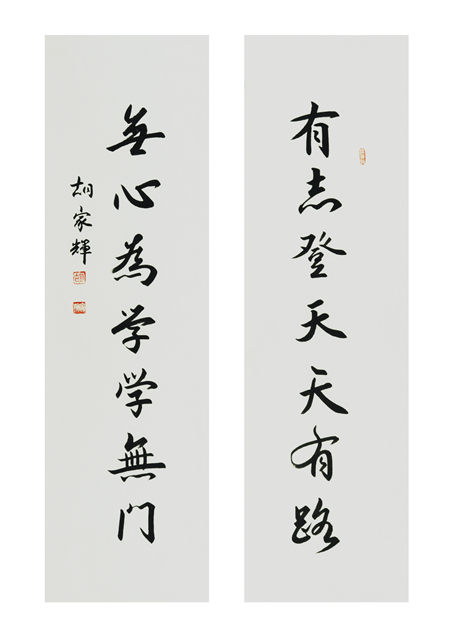 有志登天天有路
無心為学学無门
胡家輝